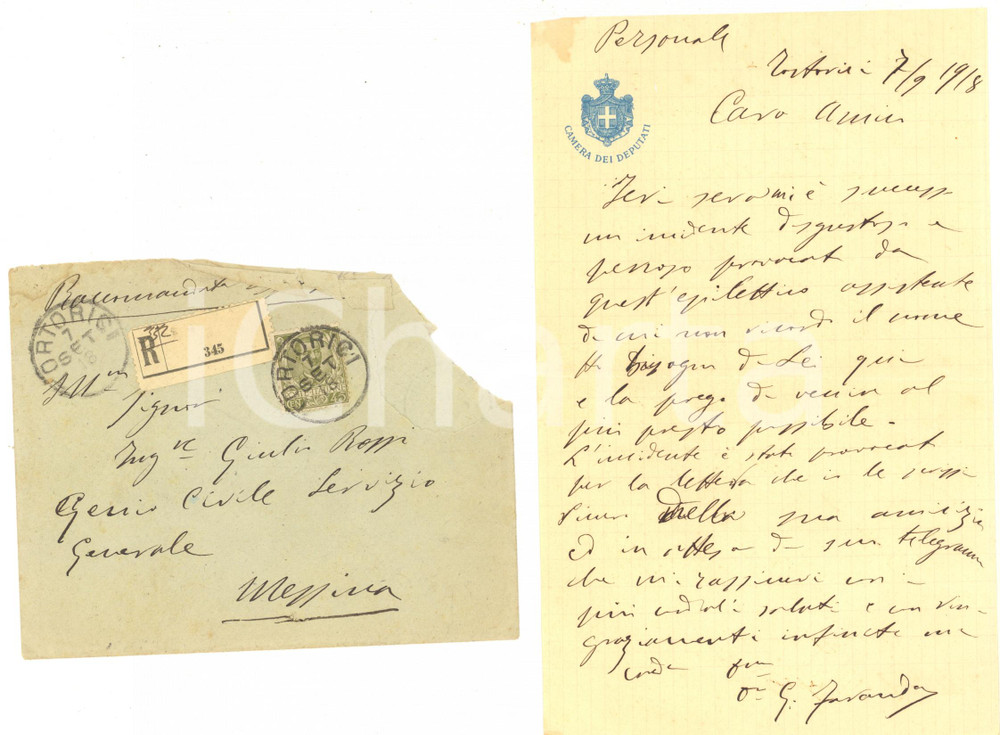 Raccomandata
TORTORICI
7
SET
18
R
345
TORTORICI
SET
18
Ill.mo
Signor
Ing.re Giulio Rossi
Genio Civile Servizio
Generale
Messina
iCharta
Personale
Tortorici 7/9 1918
Caro Amico
CAMERA DEI DEPUTATI
Ieri sera mi è successo
un incidente disgustoso e
penoso provocato da
quest'epilettico assistente
di cui non ricordo il nome
Ho bisogno di Lei qui
e la prego di venire al
più presto possibile.
L'incidente è stato provocato
per la lettera che io le scrissi
Sicuro della sua amicizia
ed in attesa di suo telegramma
che mi rassicuri coi
più cordiali saluti e con rin-
graziamenti infiniti mi
creda
D. G. Faranda